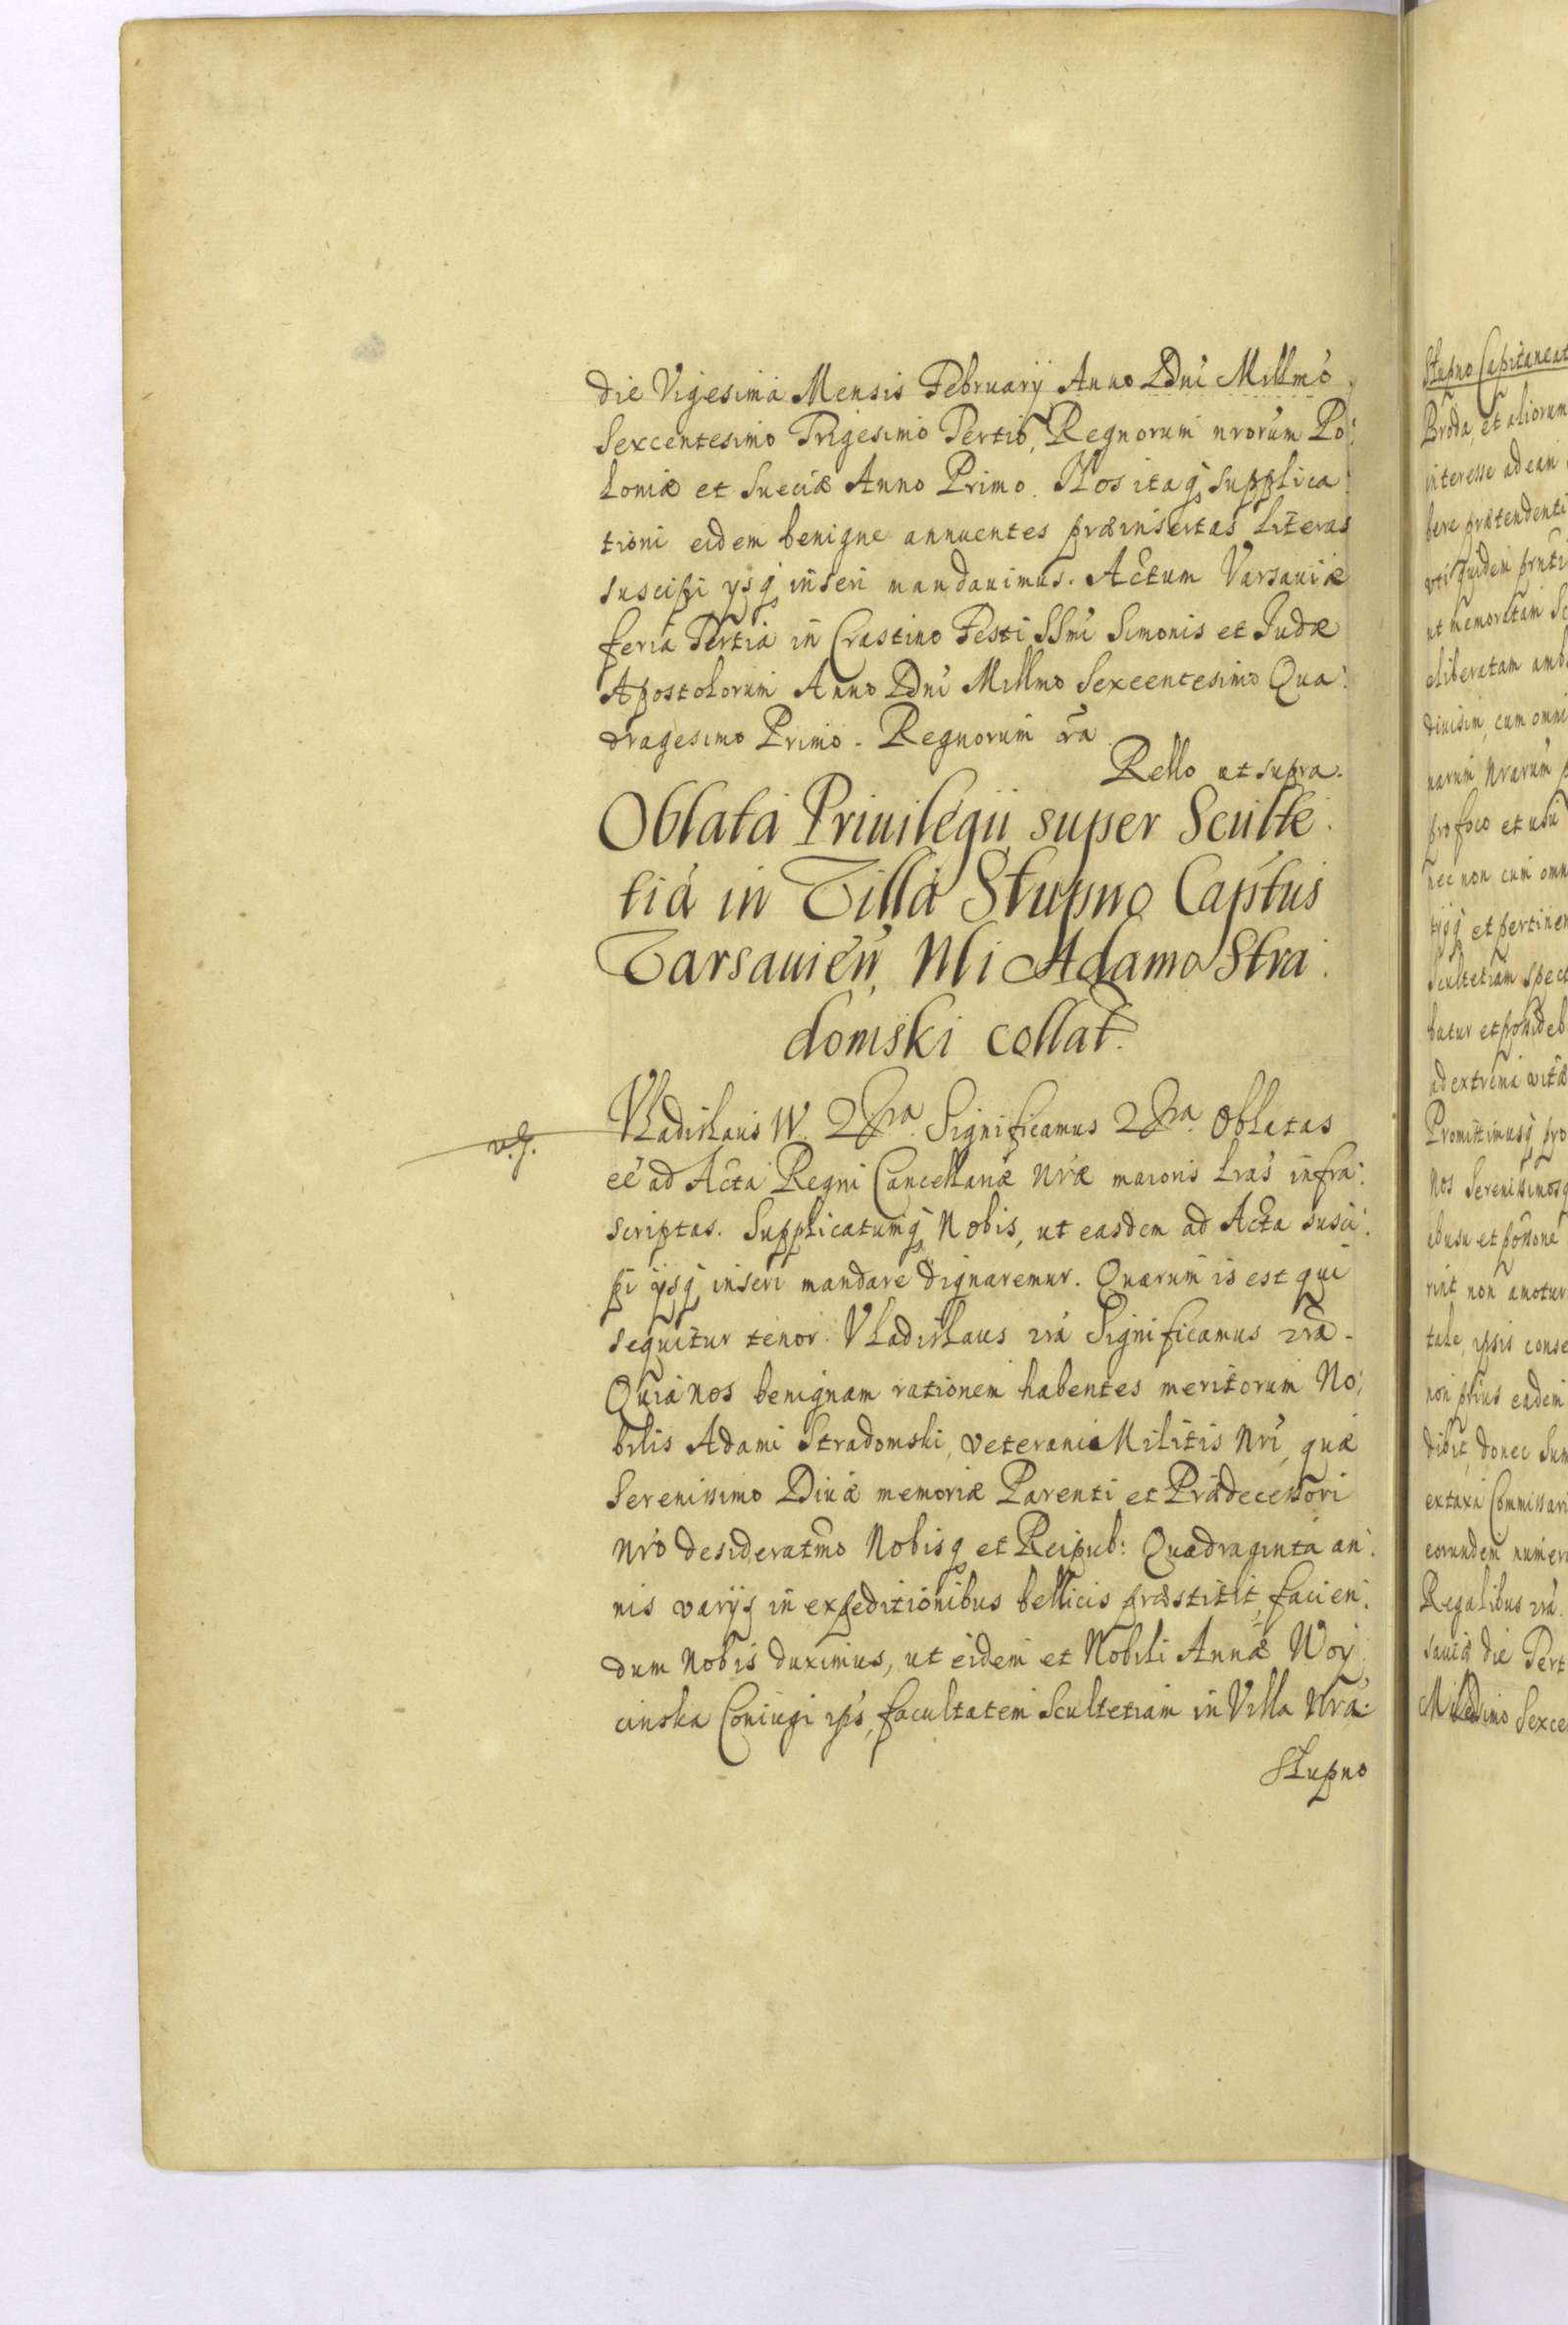 die Vigesima Mensis February Anno Dni Millmo
Sexcentesimo Trigesimo Tertio, Regnorum nrorum Po:
loniæ et Sueciæ Anno Primo. Nos itaq supplica:
tioni eidem benigne annuentes præinsertas literas
suscipi ysq inseri mandauimus. Actum Varsauiæ
feria Tertia in Crastino Festi SSmi Simonis et Judæ
Apostolorum Anno Dni Millmo Sexcentesimo Qua:
dragesimo Primo. Regnorum
Rello ut supra.
Oblata Priuilegii super Sculte:
tia in Villa Stupno Captus
Varsauien, Nli Adamo Stra:
domski collat.
v.g.
Vladislaus IV. 2ra. Significamus 2ra. Oblatas
eé ad Acta Regni Cancellariæ nræ maioris lras infra:
scriptas. Supplicatumq Nobis, ut easdem ad Acta susci:
pi ijsq inseri mandare dignaremur. Quarum is est qui
sequitur tenor. Vladislaus 2ra Significamus 2ra.
Quia nos benignam rationem habentes meritorum No:
bilis Adami Stradomski, veterani Militis Nri, quæ
Serenissimo Diuæ memoriæ Parenti et Prædecessori
nro desideratmo Nobisq et Reipub: Quadraginta an:
nis varijs in expeditionibus bellicis præstitit, facien:
dum nobis duximus, ut eidem et Nobili Annæ Woy:
cinska Coniugi ips, facultatem Scultetiam in Villa Nra:
Stupno
Stupno Capitaneat
Broda, et aliorum
interesse ad eam
bere prætendenti
ut memoratam Sc
eliberatam amb
diuisim, cum omni
narum Nrarum p
pro foco et usu
nec non cum omn
tijsq et pertinen
Scultetiam spect
batur et possideb
ad extrema vitæ
Promittimusq pro
Nos Serenissimosq
rint non amotur
tale, ipsis conse
non prius eadem
dibit, donec Sum
extaxa Commissari
eorundem numer
Regalibus 2ra.
sauiæ die Tert
Millesimo Sexce